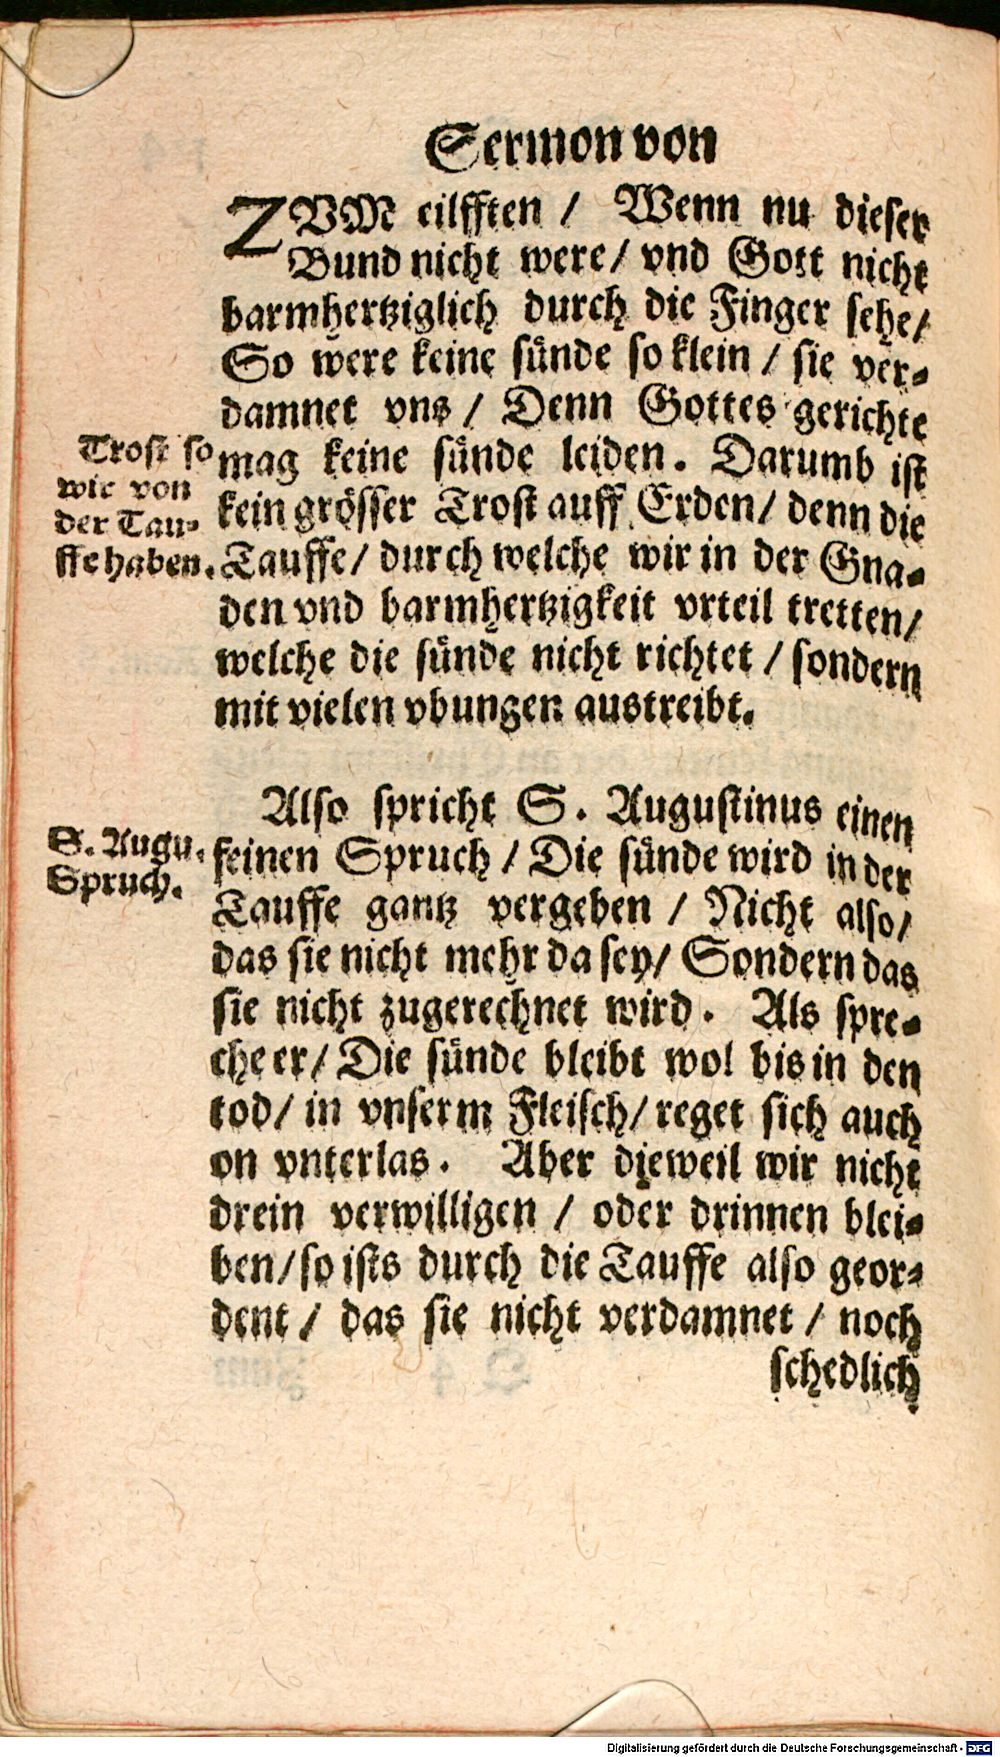 Sermon von
ZVM eilfften / Wenn nu dieser
Bund nicht were / vnd Gott nicht
barmhertziglich durch die Finger sehe /
So were keine sünde so klein / sie ver-
damnet vns / Denn Gottes gerichte
mag keine sünde leiden. Darumb ist
kein grösser Trost auff Erden / denn die
Tauffe / durch welche wir in der Gna-
den vnd barmhertzigkeit vrteil tretten /
welche die sünde nicht richtet / sondern
mit vielen vbungen austreibt.
Trost so
wir von
der Tau-
ffe haben.
Also spricht S. Augustinus einen
feinen Spruch / Die sünde wird in der
Tauffe gantz vergeben / Nicht also /
das sie nicht mehr da sey / Sondern das
sie nicht zugerechnet wird. Als spre-
che er / Die sünde bleibt wol bis in den
tod / in vnserm Fleisch / reget sich auch
on vnterlas. Aber dieweil wir nicht
drein verwilligen / oder drinnen blei-
ben / so ists durch die Tauffe also geor-
dent / das sie nicht verdamnet / noch
schedlich
S. Augu.
Spruch.
Digitalisierung gefördert durch die Deutsche Forschungsgemeinschaft - DFG